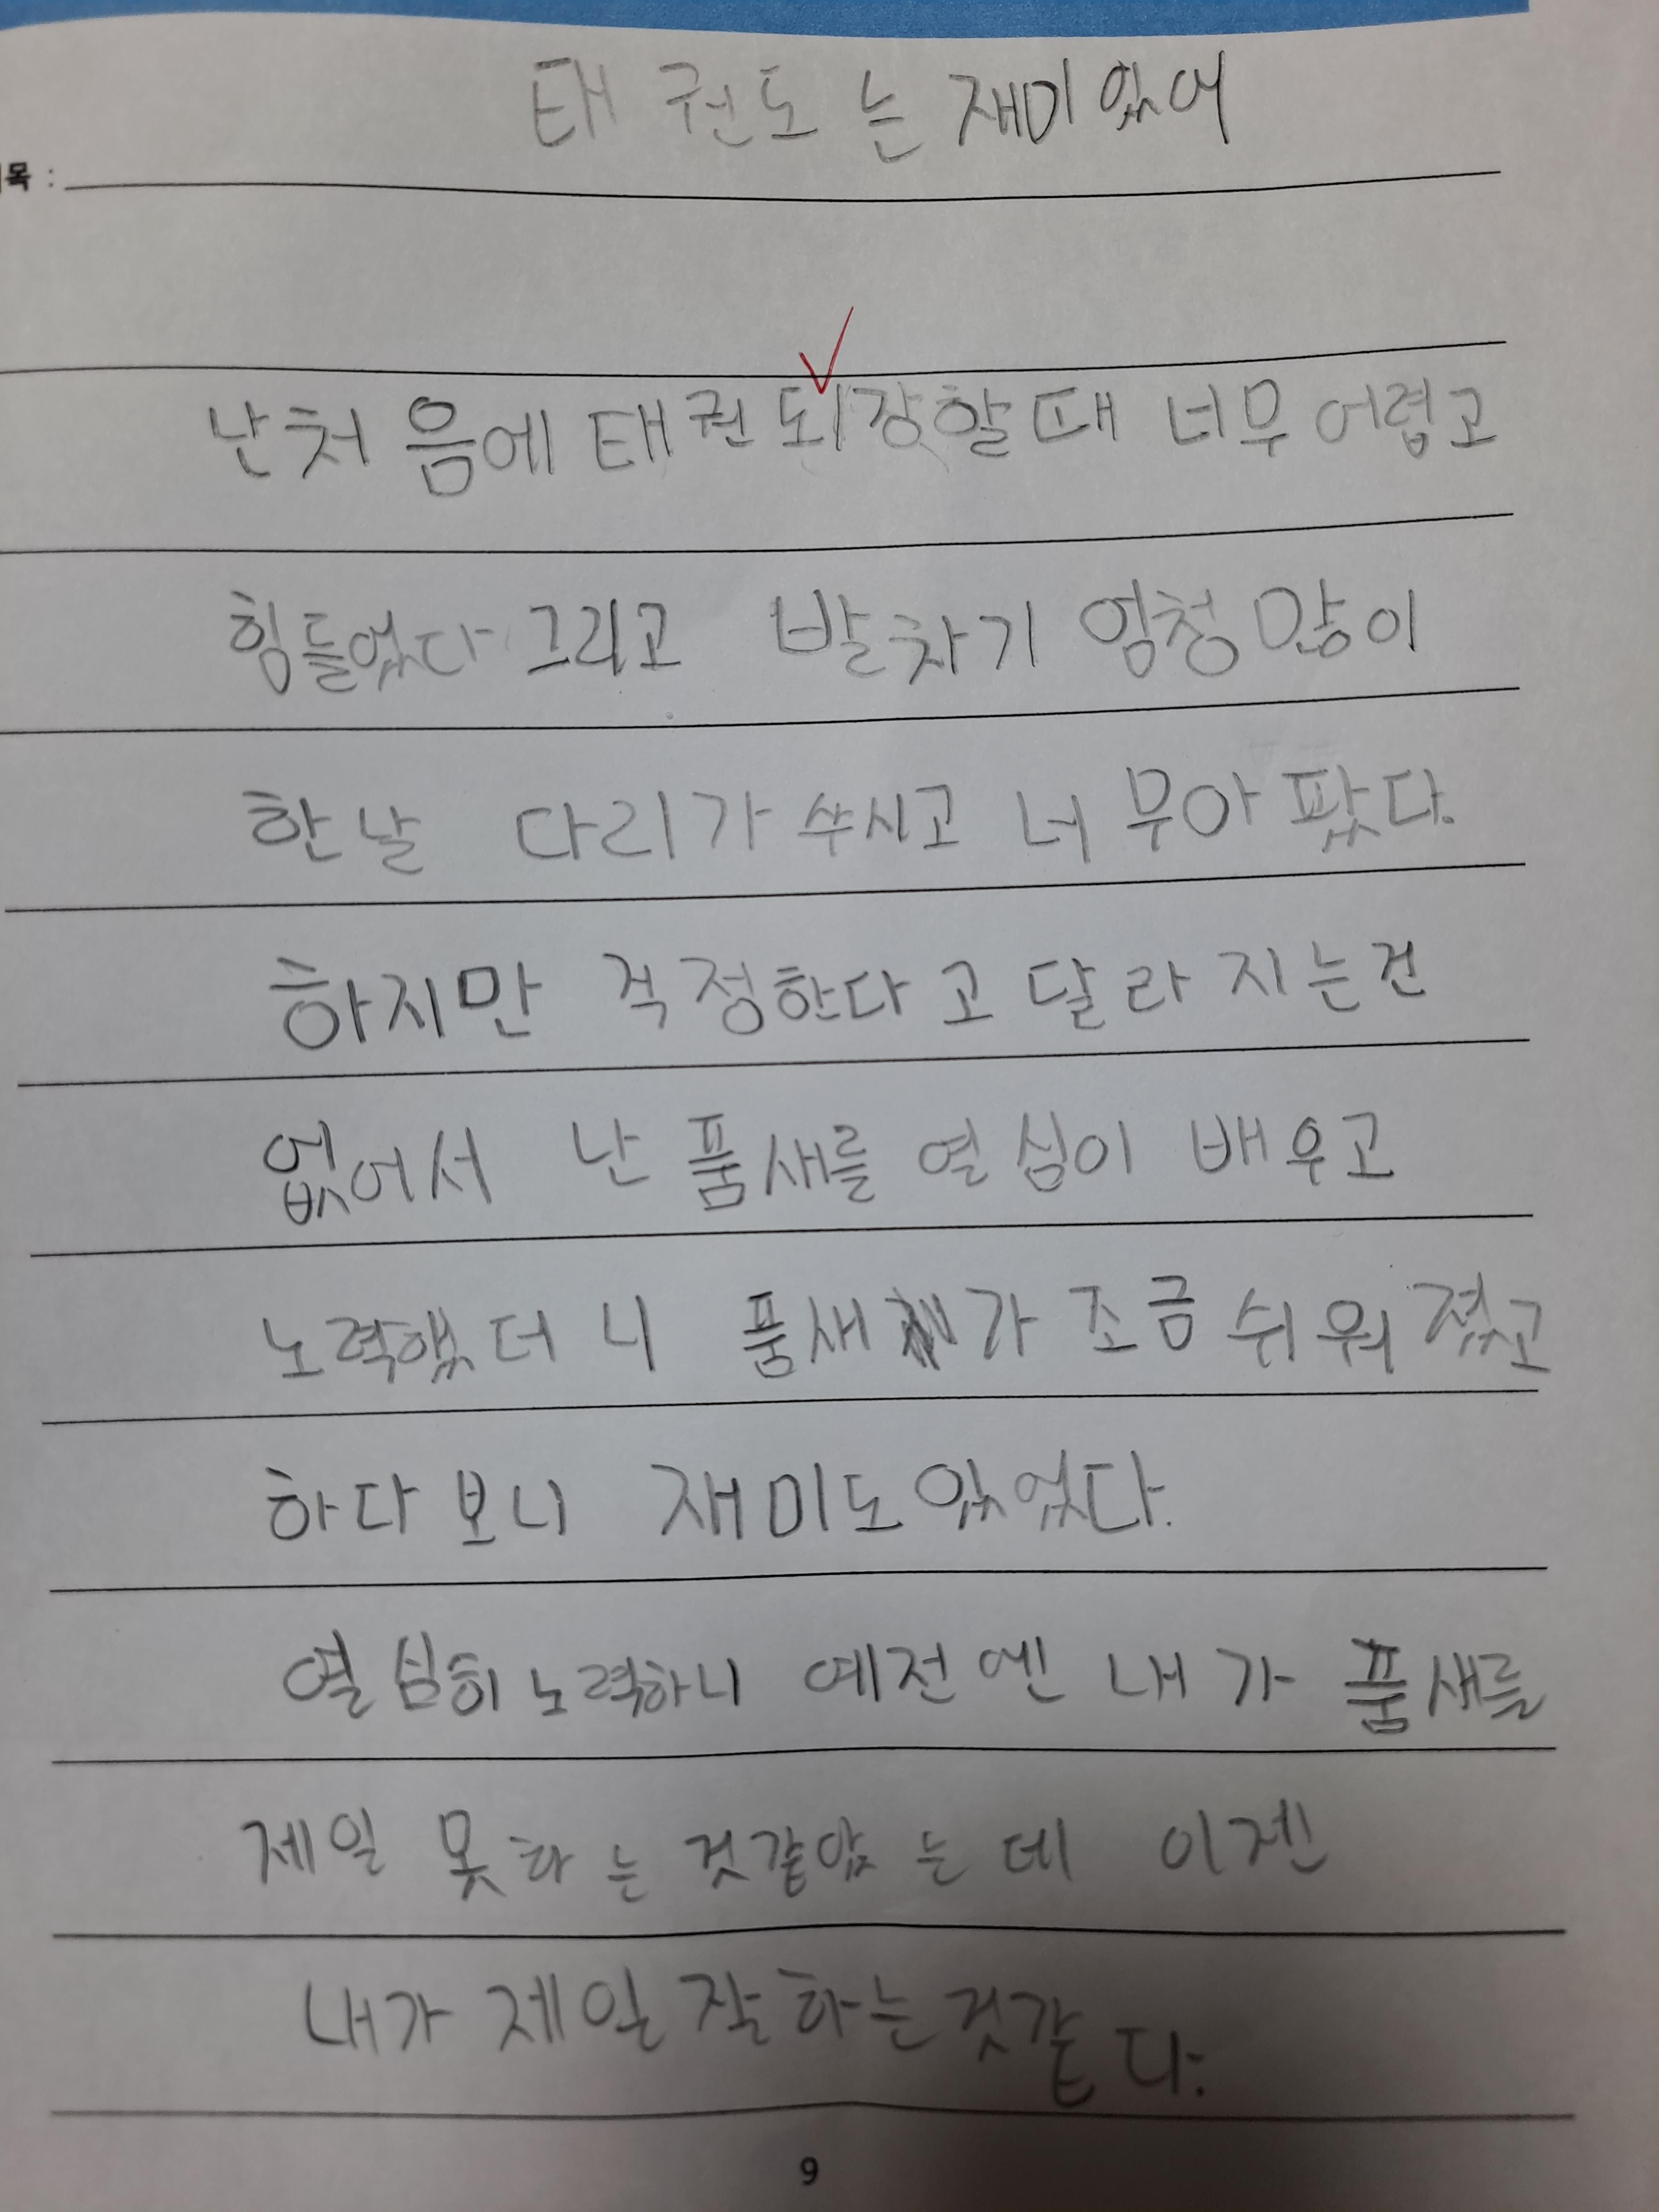 태권도는 재미있어
제목 :
난 처음에 태권되장할때 너무 어렵고
힘들었다 그리고 발차기 엄청 많이
한날 다리가 쑤시고 너무아팠다.
하지만 걱정한다고 달라지는건
없어서 난 품새를 열심이 배우고
노력했더니 품새가 조금 쉬워졌고
하다보니 재미도있었다.
열심히 노력하니 예전엔 내가 품새를
제일 못하는것같았는데 이젠
내가 제일 잘하는것같다.
9